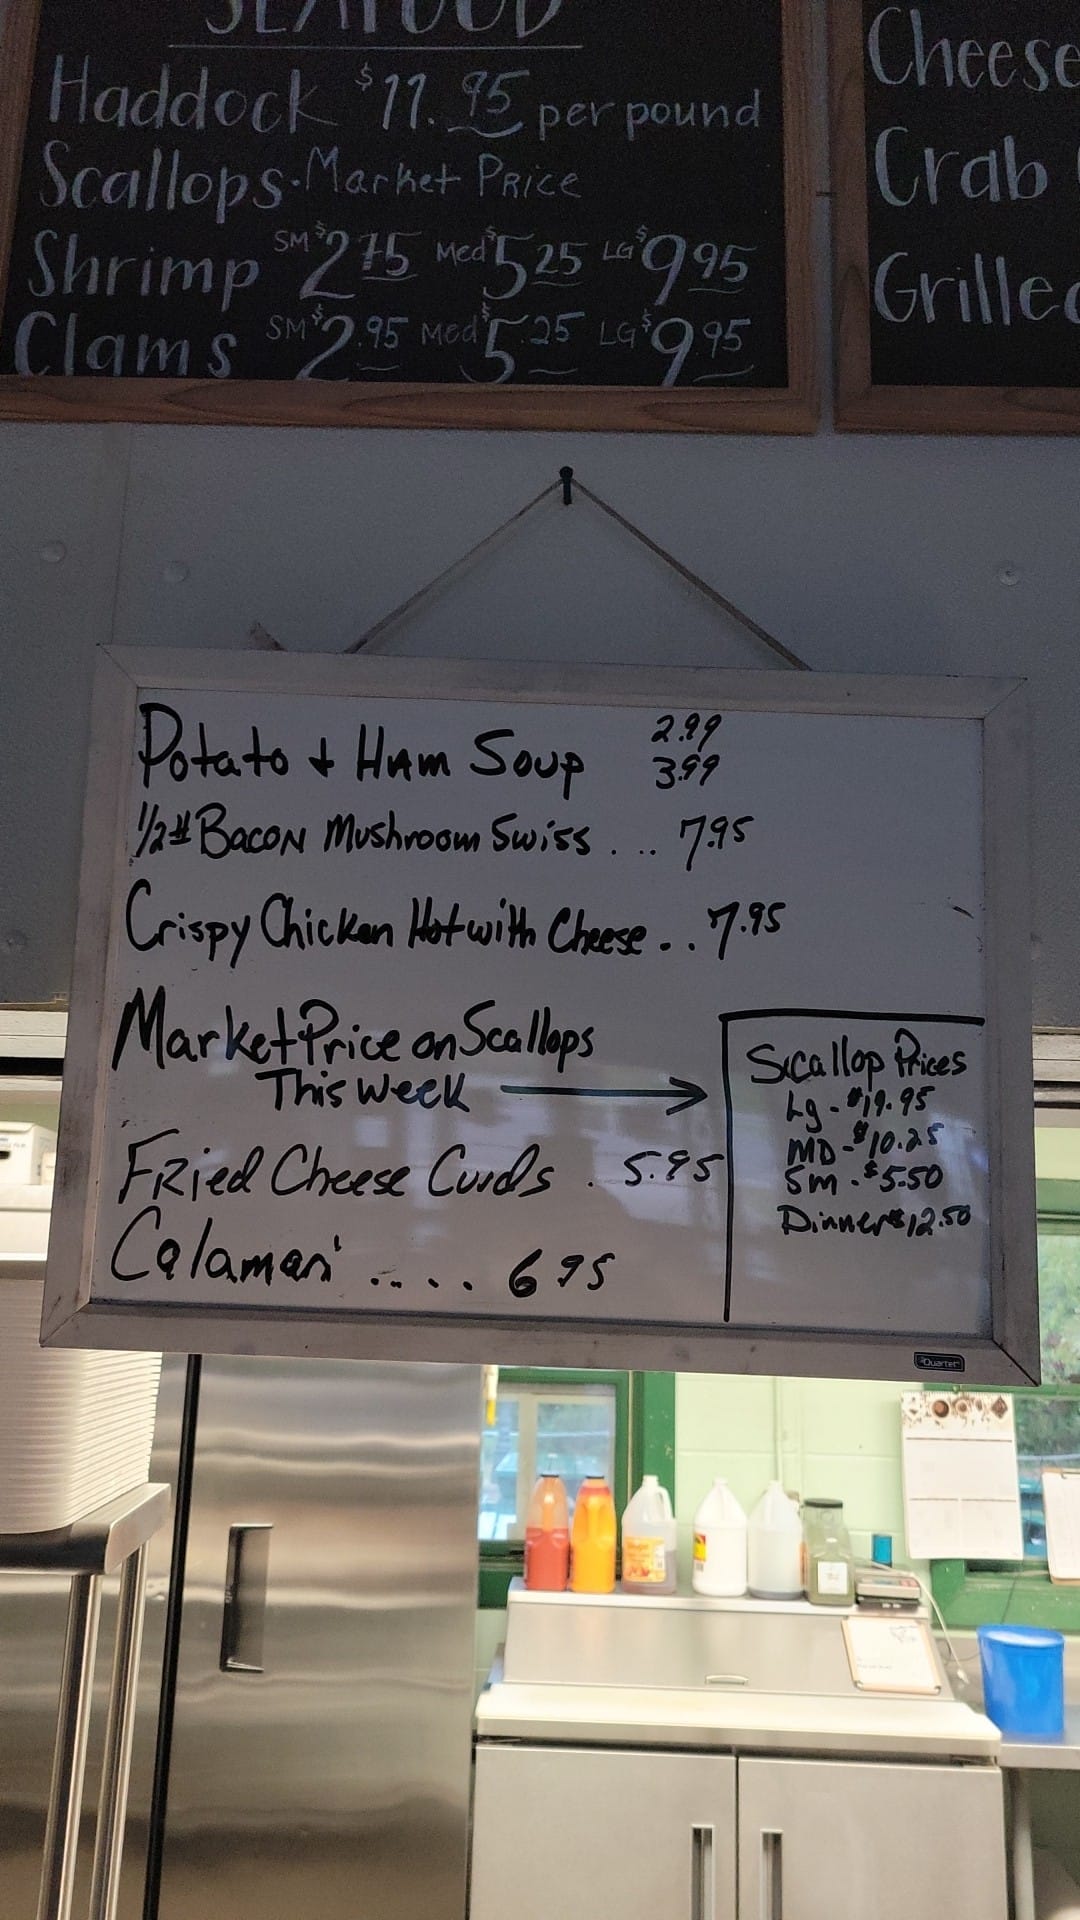 SEAFOOD
Haddock $11.95 per pound
Scallops - Market Price
Shrimp SM $2.75 Med $5.25 LG $9.95
Clams SM $2.95 Med $5.25 LG $9.95
Cheese
Crab
Grilled
Potato + Ham Soup 2.99
3.99
1/2# Bacon Mushroom Swiss . .. 7.95
Crispy Chicken Hot with Cheese . . 7.95
Market Price on Scallops
This week →
Scallop Prices
Lg - $19.95
MD - $10.25
Sm - $5.50
Dinner $12.50
Fried Cheese Curds . 5.95
Calamari .... 6 95
Quartet